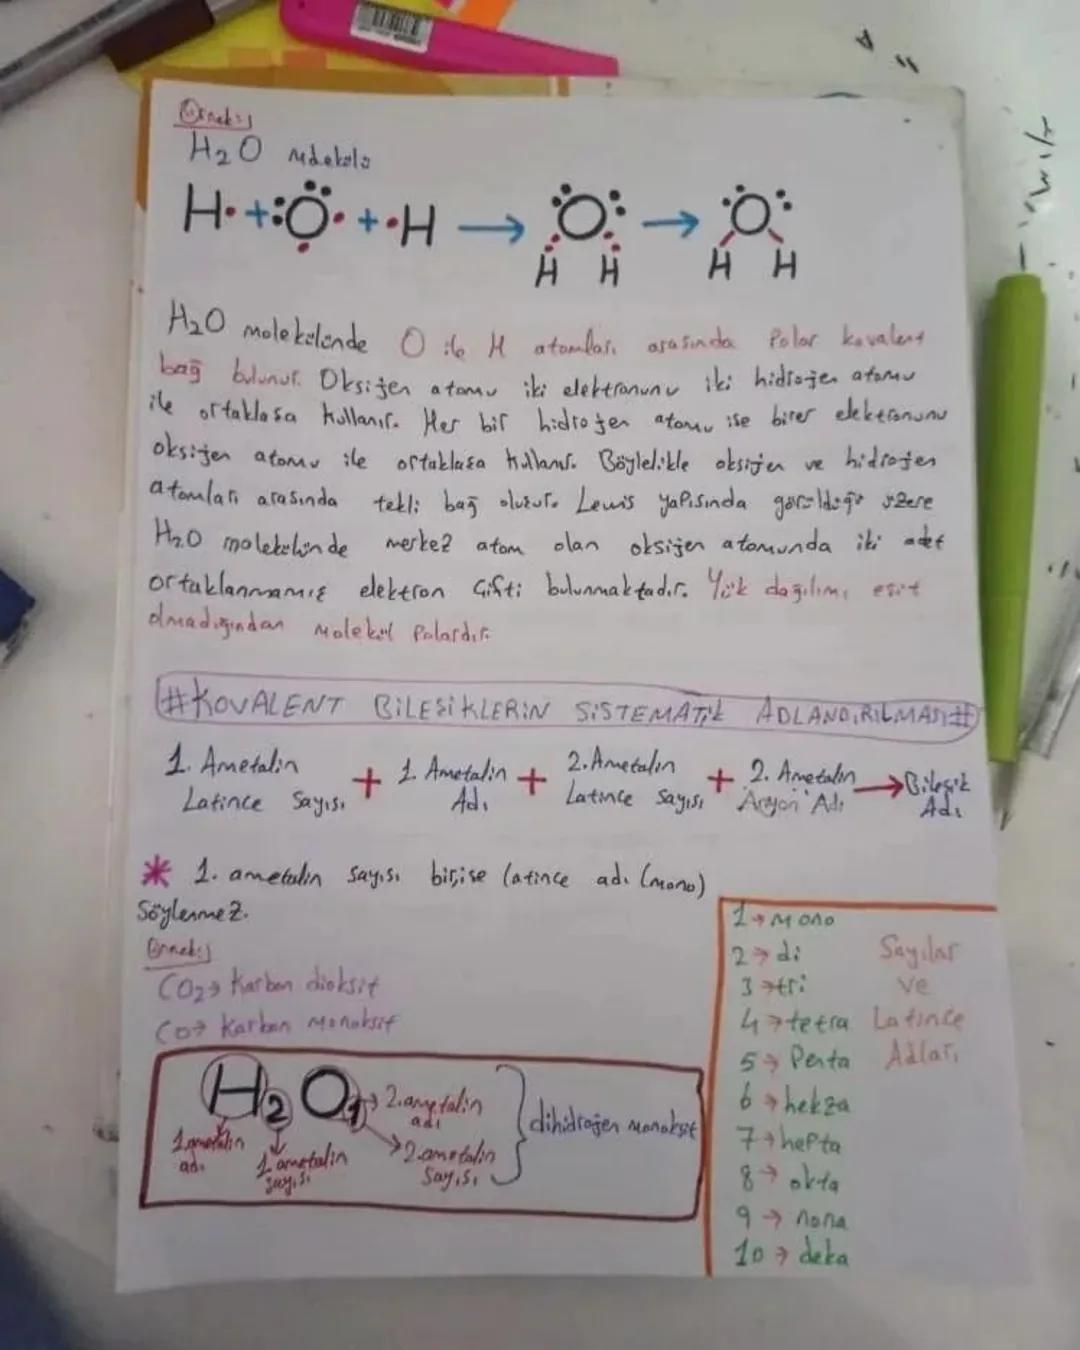 Örnek;
H₂O Molekülü
H· + :Ö· + ·H → :Ö: → :Ö:
H H H H
H₂O molekülünde O ile H atomları arasında Polar kovalent
bağ bulunur. Oksijen atomu iki elektronunu iki hidrojen atomu
ile ortaklaşa kullanır. Her bir hidrojen atomu ise birer elektronunu
oksijen atomu ile ortaklaşa kullanır. Böylelikle oksijen ve hidrojen
atomları arasında tekli bağ oluşur. Lewis yapısında görüldüğü üzere
H₂O molekülünde merkez atom olan oksijen atomunda iki adet
ortaklanmamış elektron çifti bulunmaktadır. Yük dağılımı eşit
olmadığından molekül Polardır.
#KOVALENT BİLEŞİKLERİN SİSTEMATİK ADLANDIRILMASI#
1. Ametalin Latince Sayısı + 1. Ametalin Adı + 2. Ametalin Latince Sayısı + 2. Ametalin Anyon Adı → Bileşik Adı
* 1. ametalin sayısı bir ise latince adı (mono)
Söylenmez.
Örnek;
CO₂ → Karbon dioksit
CO → Karbon Monoksit
H₂O₁
1. ametalin adı
1. ametalin sayısı
2. ametalin adı
2. ametalin Sayısı
dihidrojen monoksit
Sayılar ve Latince Adları
1 → Mono
2 → di
3 → tri
4 → tetra
5 → Penta
6 → hekza
7 → hepta
8 → okta
9 → nona
10 → deka